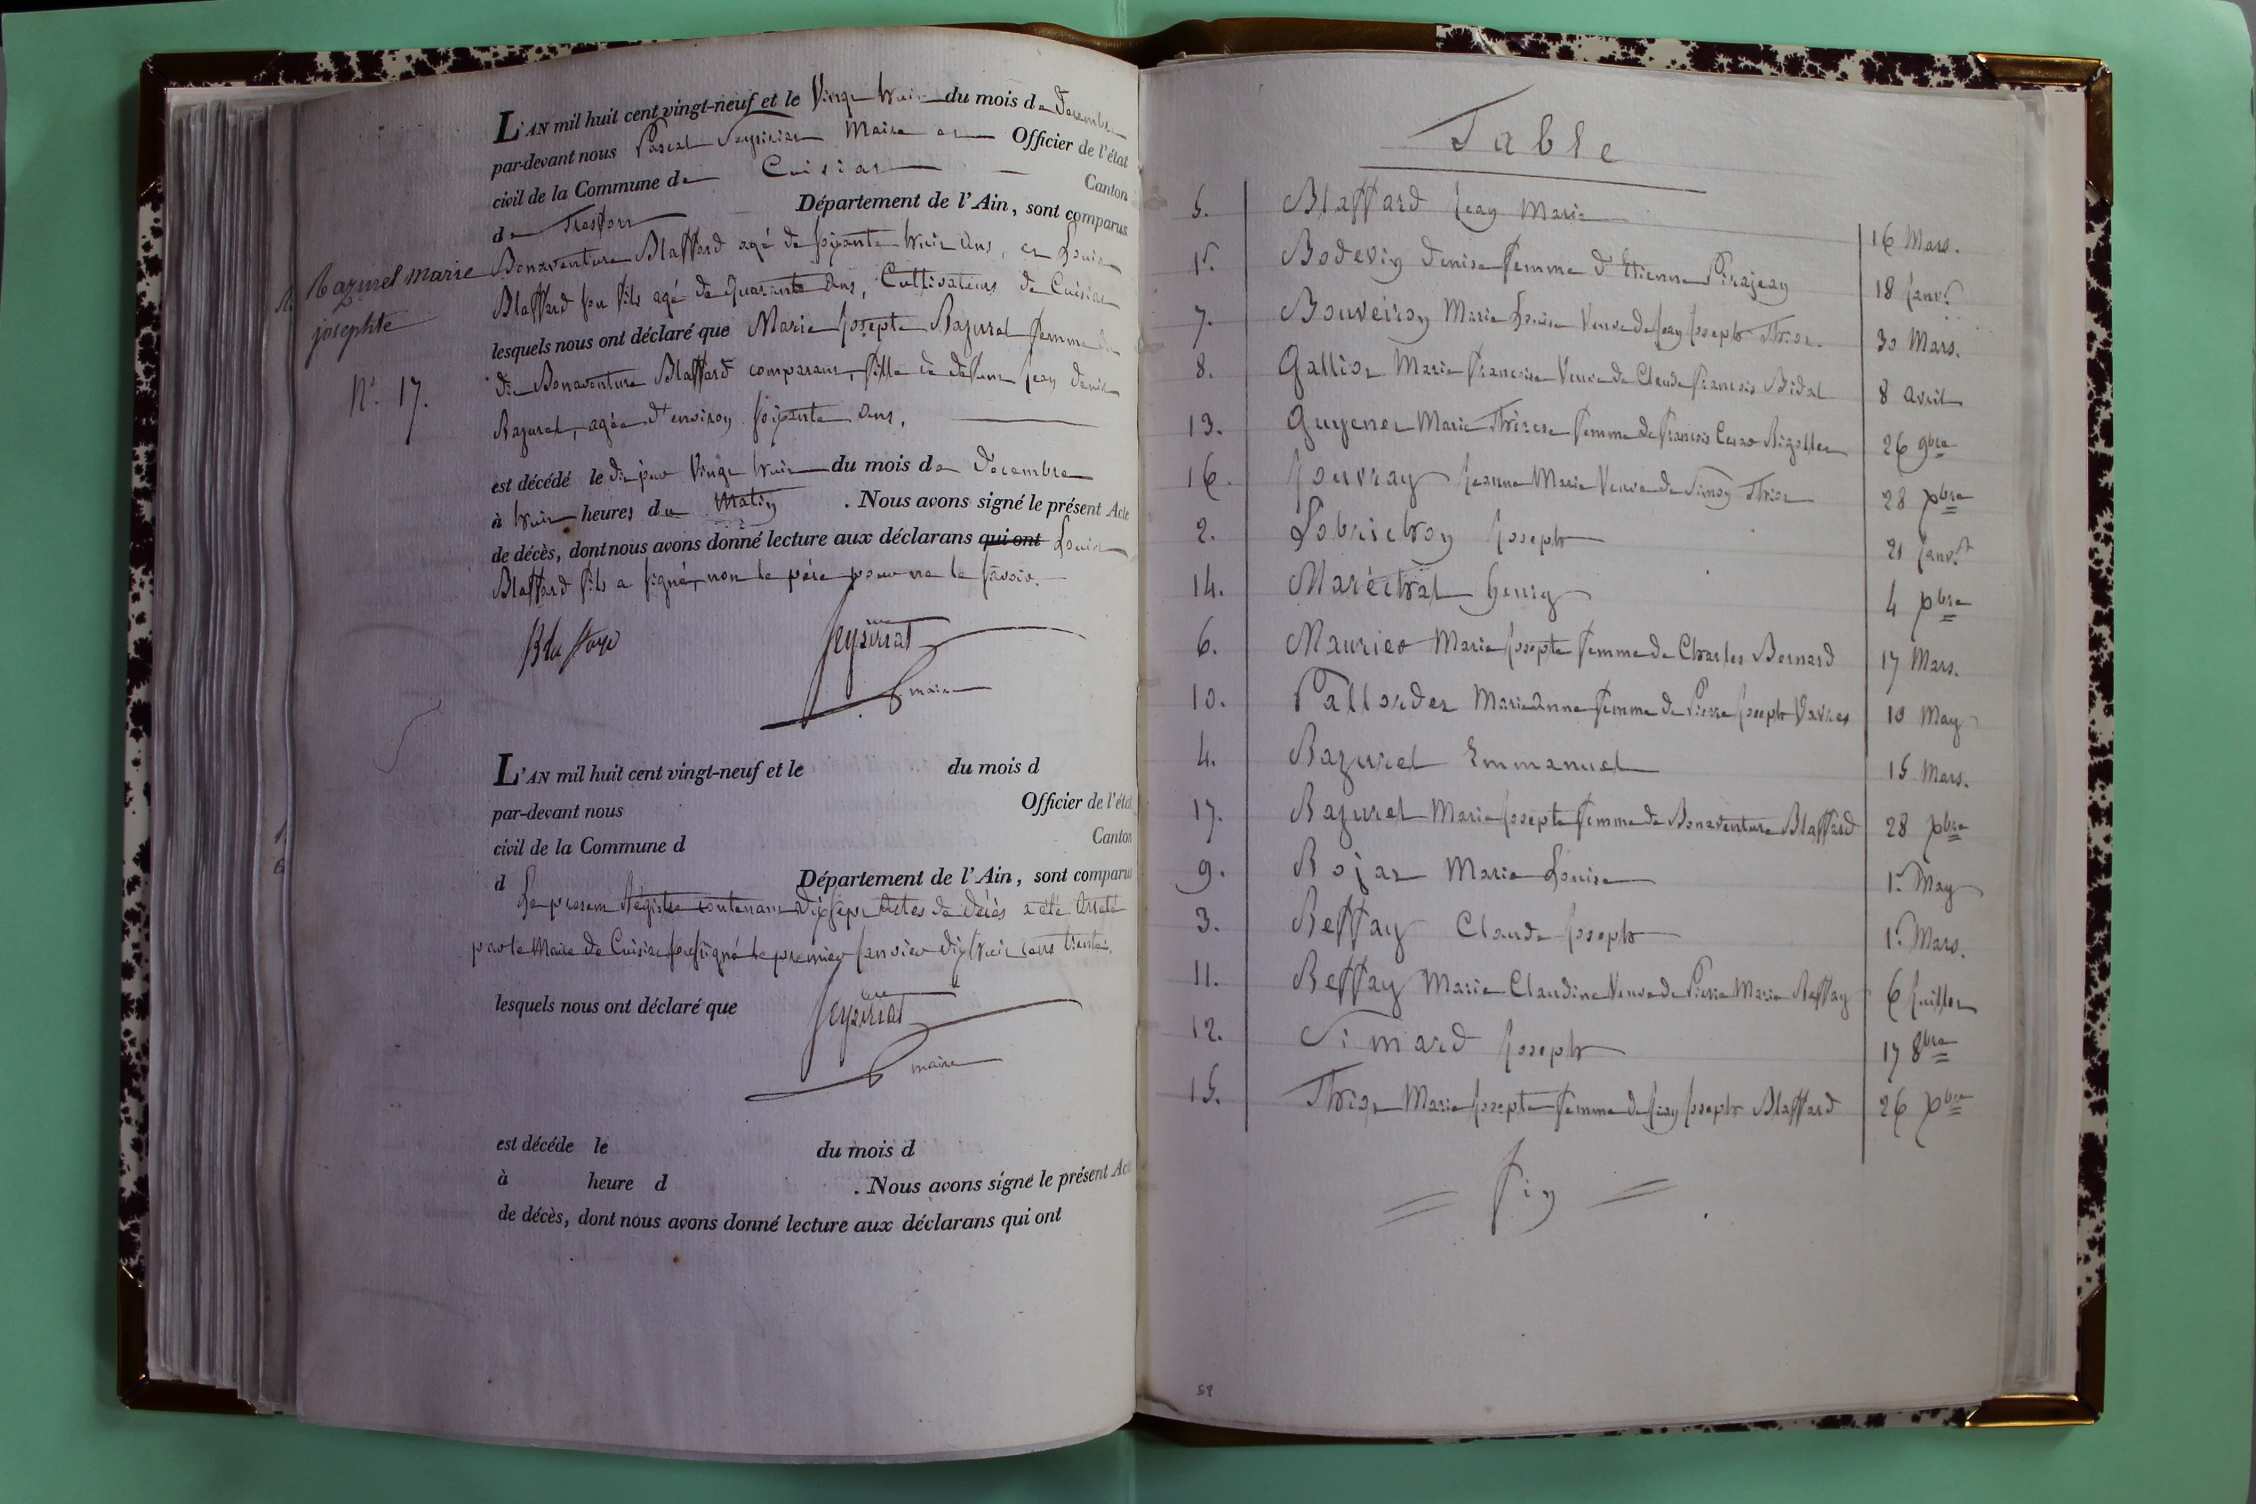 L'AN mil huit cent vingt-neuf et le Vingt huit du mois de Decembre
par-devant nous Pascal Seyssirat Maire et Officier de l'état
civil de la Commune de Cuisiat Canton
de Treffort Département de l'Ain, sont comparus
Bonaventure Blaffard agé de soixante huit ans, et Louis
Blaffard son fils agé de Quarante ans, Cultivateurs de Cuisiat
lesquels nous ont déclaré que Marie Josepte Bazuret femme
dit Bonaventure Blaffard comparant, fille de defunt Jean denis
Razurel, agée d'environ soixante ans,
est décédé le dit jour Vingt huit du mois de Decembre
à huit heures du Matin . Nous avons signé le présent Acte
de décès, dont nous avons donné lecture aux déclarans qui ont Louis
Blaffard fils a signé, non le père pour ne le savoir.
Razurel marie
josephte
N° 17.
Blaffard
maire
L'AN mil huit cent vingt-neuf et le du mois d
par-devant nous Officier de l'état
civil de la Commune d Canton
d Département de l'Ain, sont comparus
Le present Régistre contenant Dix sept Actes de décès a été Arreté
par le Maire de Cuisiat soussigné le premier Janvier dix huit cent trente.
lesquels nous ont déclaré que
maire
est décéde le du mois d
à heure d . Nous avons signé le présent Acte
de décès, dont nous avons donné lecture aux déclarans qui ont
Table
5. Blaffard Jean Marie 16 Mars.
1. Bodevin denise femme d'Etienne Pirajean 18 Janv.
7. Bouveiron Marie Louise Veuve de Jean Joseph Thior. 30 Mars.
8. Gallior Marie Françoise Veuve de Claude François Bidal 8 avril
13. Guyenet Marie Thérese femme de François Rigollet 26 9bre
16. Jouvray Jeanne Marie Veuve de Simon Thior 28 xbre
2. Lobrichon Joseph 21 Janv.
14. Maréchal henry 4 xbre
6. Maurier Marie Josepte femme de Charles Bernard 17 Mars.
10. Pallordet Marie Anne femme de Pierre Joseph Vavres 10 May
4. Razurel Emmanuel 15 Mars.
17. Razurel Marie Josepte femme de Bonaventure Blaffard 28 xbre
9. Rojat Marie Louise 1. May
3. Reffay Claude Joseph 1. Mars.
11. Reffay Marie Claudine Veuve de Pierre Marie Reffay 6 Juillet
12. Simard Joseph 17 8bre
15. Thior Marie Josepte femme de Jean Joseph Blaffard 26 xbre
Fin
58